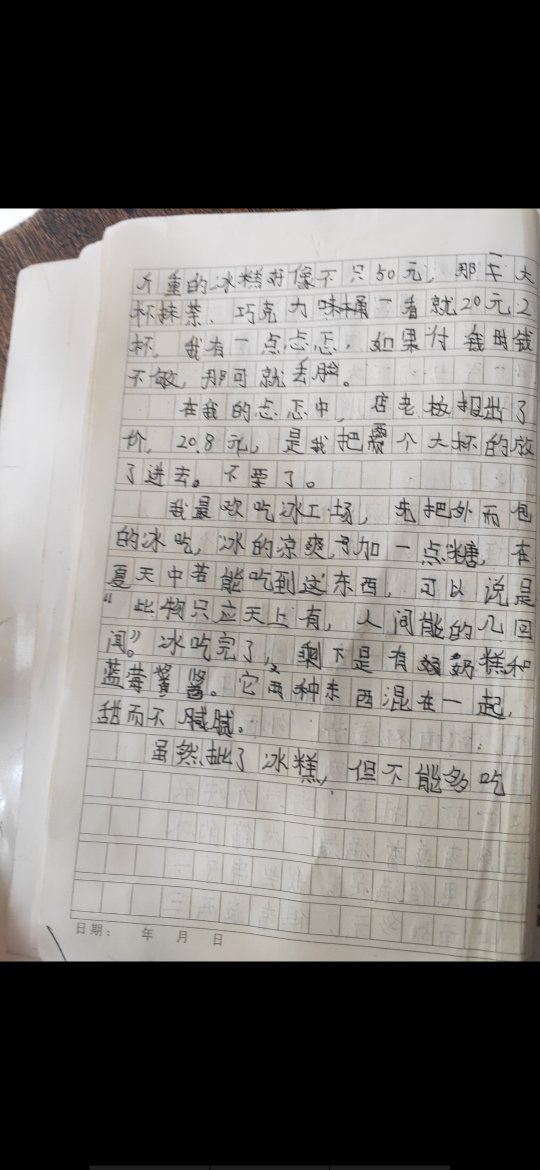 斤重的冰糕好像不只50元，那三大
杯抹茶、巧克力味桶一看就20元2
杯。我有一点忐忑，如果付我时钱
不够，那可就丢脸。
在我的忐忑中，店老板报出了
价，20.8元，是我把需个大杯的放
了进去。不要了。
我最欢吃冰工场，先把外而包
的冰吃，冰的凉爽加一点糖，在
夏天中若能吃到这东西，可以说是
“此物只应天上有，人间能的几回
闻”。冰吃完了，剩下是有奶糕和
蓝莓酱。它两种东西混在一起，
甜而不腻。
虽然了冰糕，但不能多吃
日期： 年 月 日